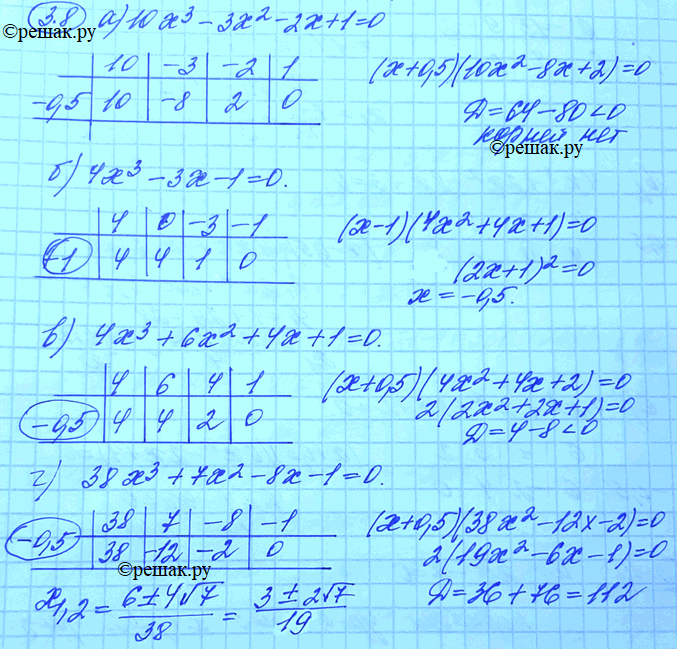 3.8 а) 10x³ - 3x² - 2x + 1 = 0
©решак.ру
10 -3 -2 1
-0,5 10 -8 2 0
(x+0,5)(10x² - 8x + 2) = 0
D = 64 - 80 < 0
корней нет
©решак.ру
б) 4x³ - 3x - 1 = 0.
4 0 -3 -1
1 4 4 1 0
(x-1)(4x² + 4x + 1) = 0
(2x+1)² = 0
x = -0,5.
в) 4x³ + 6x² + 4x + 1 = 0.
4 6 4 1
-0,5 4 4 2 0
(x+0,5)(4x² + 4x + 2) = 0
2(2x² + 2x + 1) = 0
D = 4 - 8 < 0
г) 38x³ + 7x² - 8x - 1 = 0.
38 7 -8 -1
-0,5 38 -12 -2 0
(x+0,5)(38x² - 12x - 2) = 0
2(19x² - 6x - 1) = 0
D = 36 + 76 = 112
©решак.ру
x₁,₂ = (6 ± 4√7)/38 = (3 ± 2√7)/19